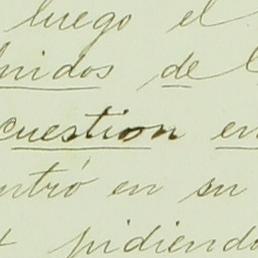 luego el
nidos de
cuestion en
ntró en su
pidiendo